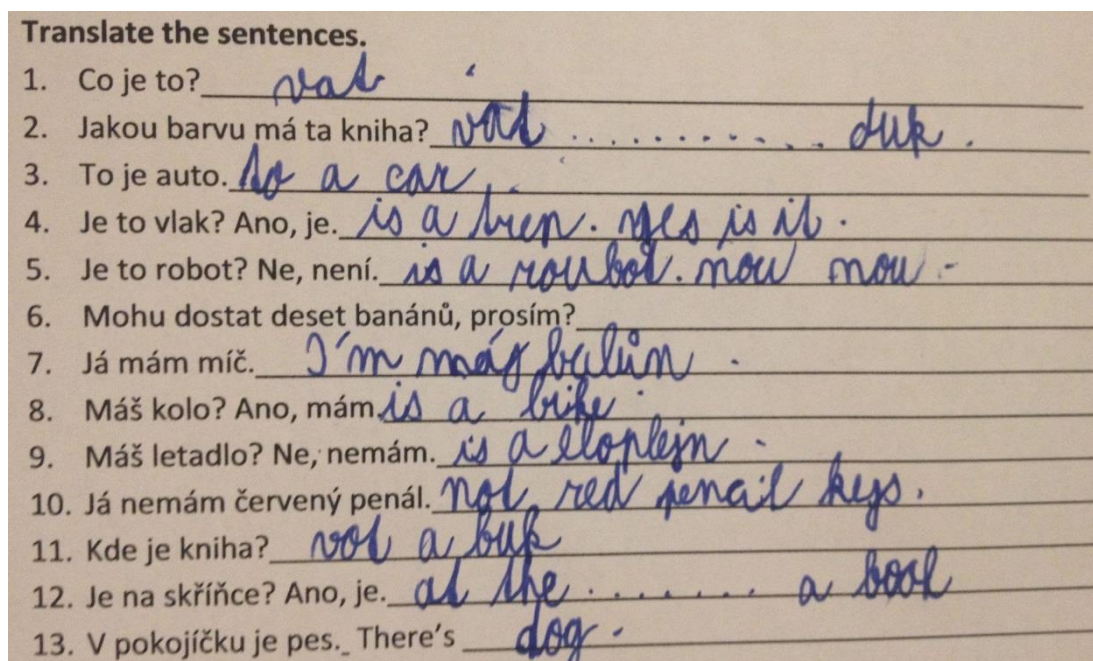 Translate the sentences.
1. Co je to? vat
2. Jakou barvu má ta kniha? vat .......... duk.
3. To je auto. to a car.
4. Je to vlak? Ano, je. is a tren. yes is it.
5. Je to robot? Ne, není. is a roubot. nou nou.
6. Mohu dostat deset banánů, prosím?
7. Já mám míč. I'm máj balůn.
8. Máš kolo? Ano, mám. is a bike.
9. Máš letadlo? Ne, nemám. is a eloplejn.
10. Já nemám červený penál. not red pencil kejs.
11. Kde je kniha? vot a buk
12. Je na skříňce? Ano, je. at the ....... a book
13. V pokojíčku je pes. There's dog.